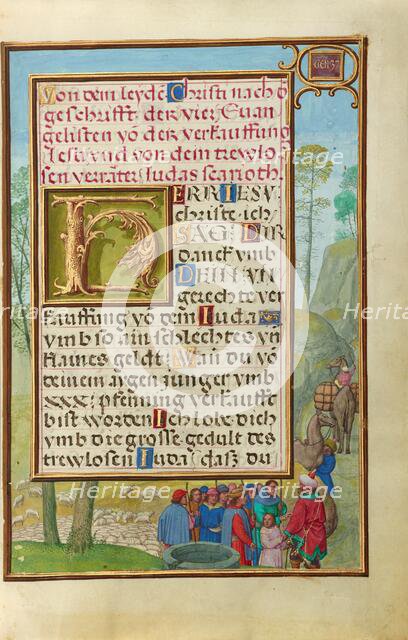 GEN: 37
Von dem leydē Christi nach d
geschrifft der vier Euan
gelisten vō der verkauffung
Jesu vnd von dem trewlo
sen verräter Judas scarioth
HERR IESV
christe ich
SAG DIR
danck vmb
DEIN VN
gerechte ver
kauffung vō dem Juda
vmb so ain schlechtes vn
klaines geldt: Wan du vō
deinem argen junger vmb
xxx: pfenning verkaufft
bist worden Ich lobe dich
vmb die grosse gedult des
trewlosen Juda: dasz du
Heritage
Heritage
Heritage
Heritage
Heritage
Heritage